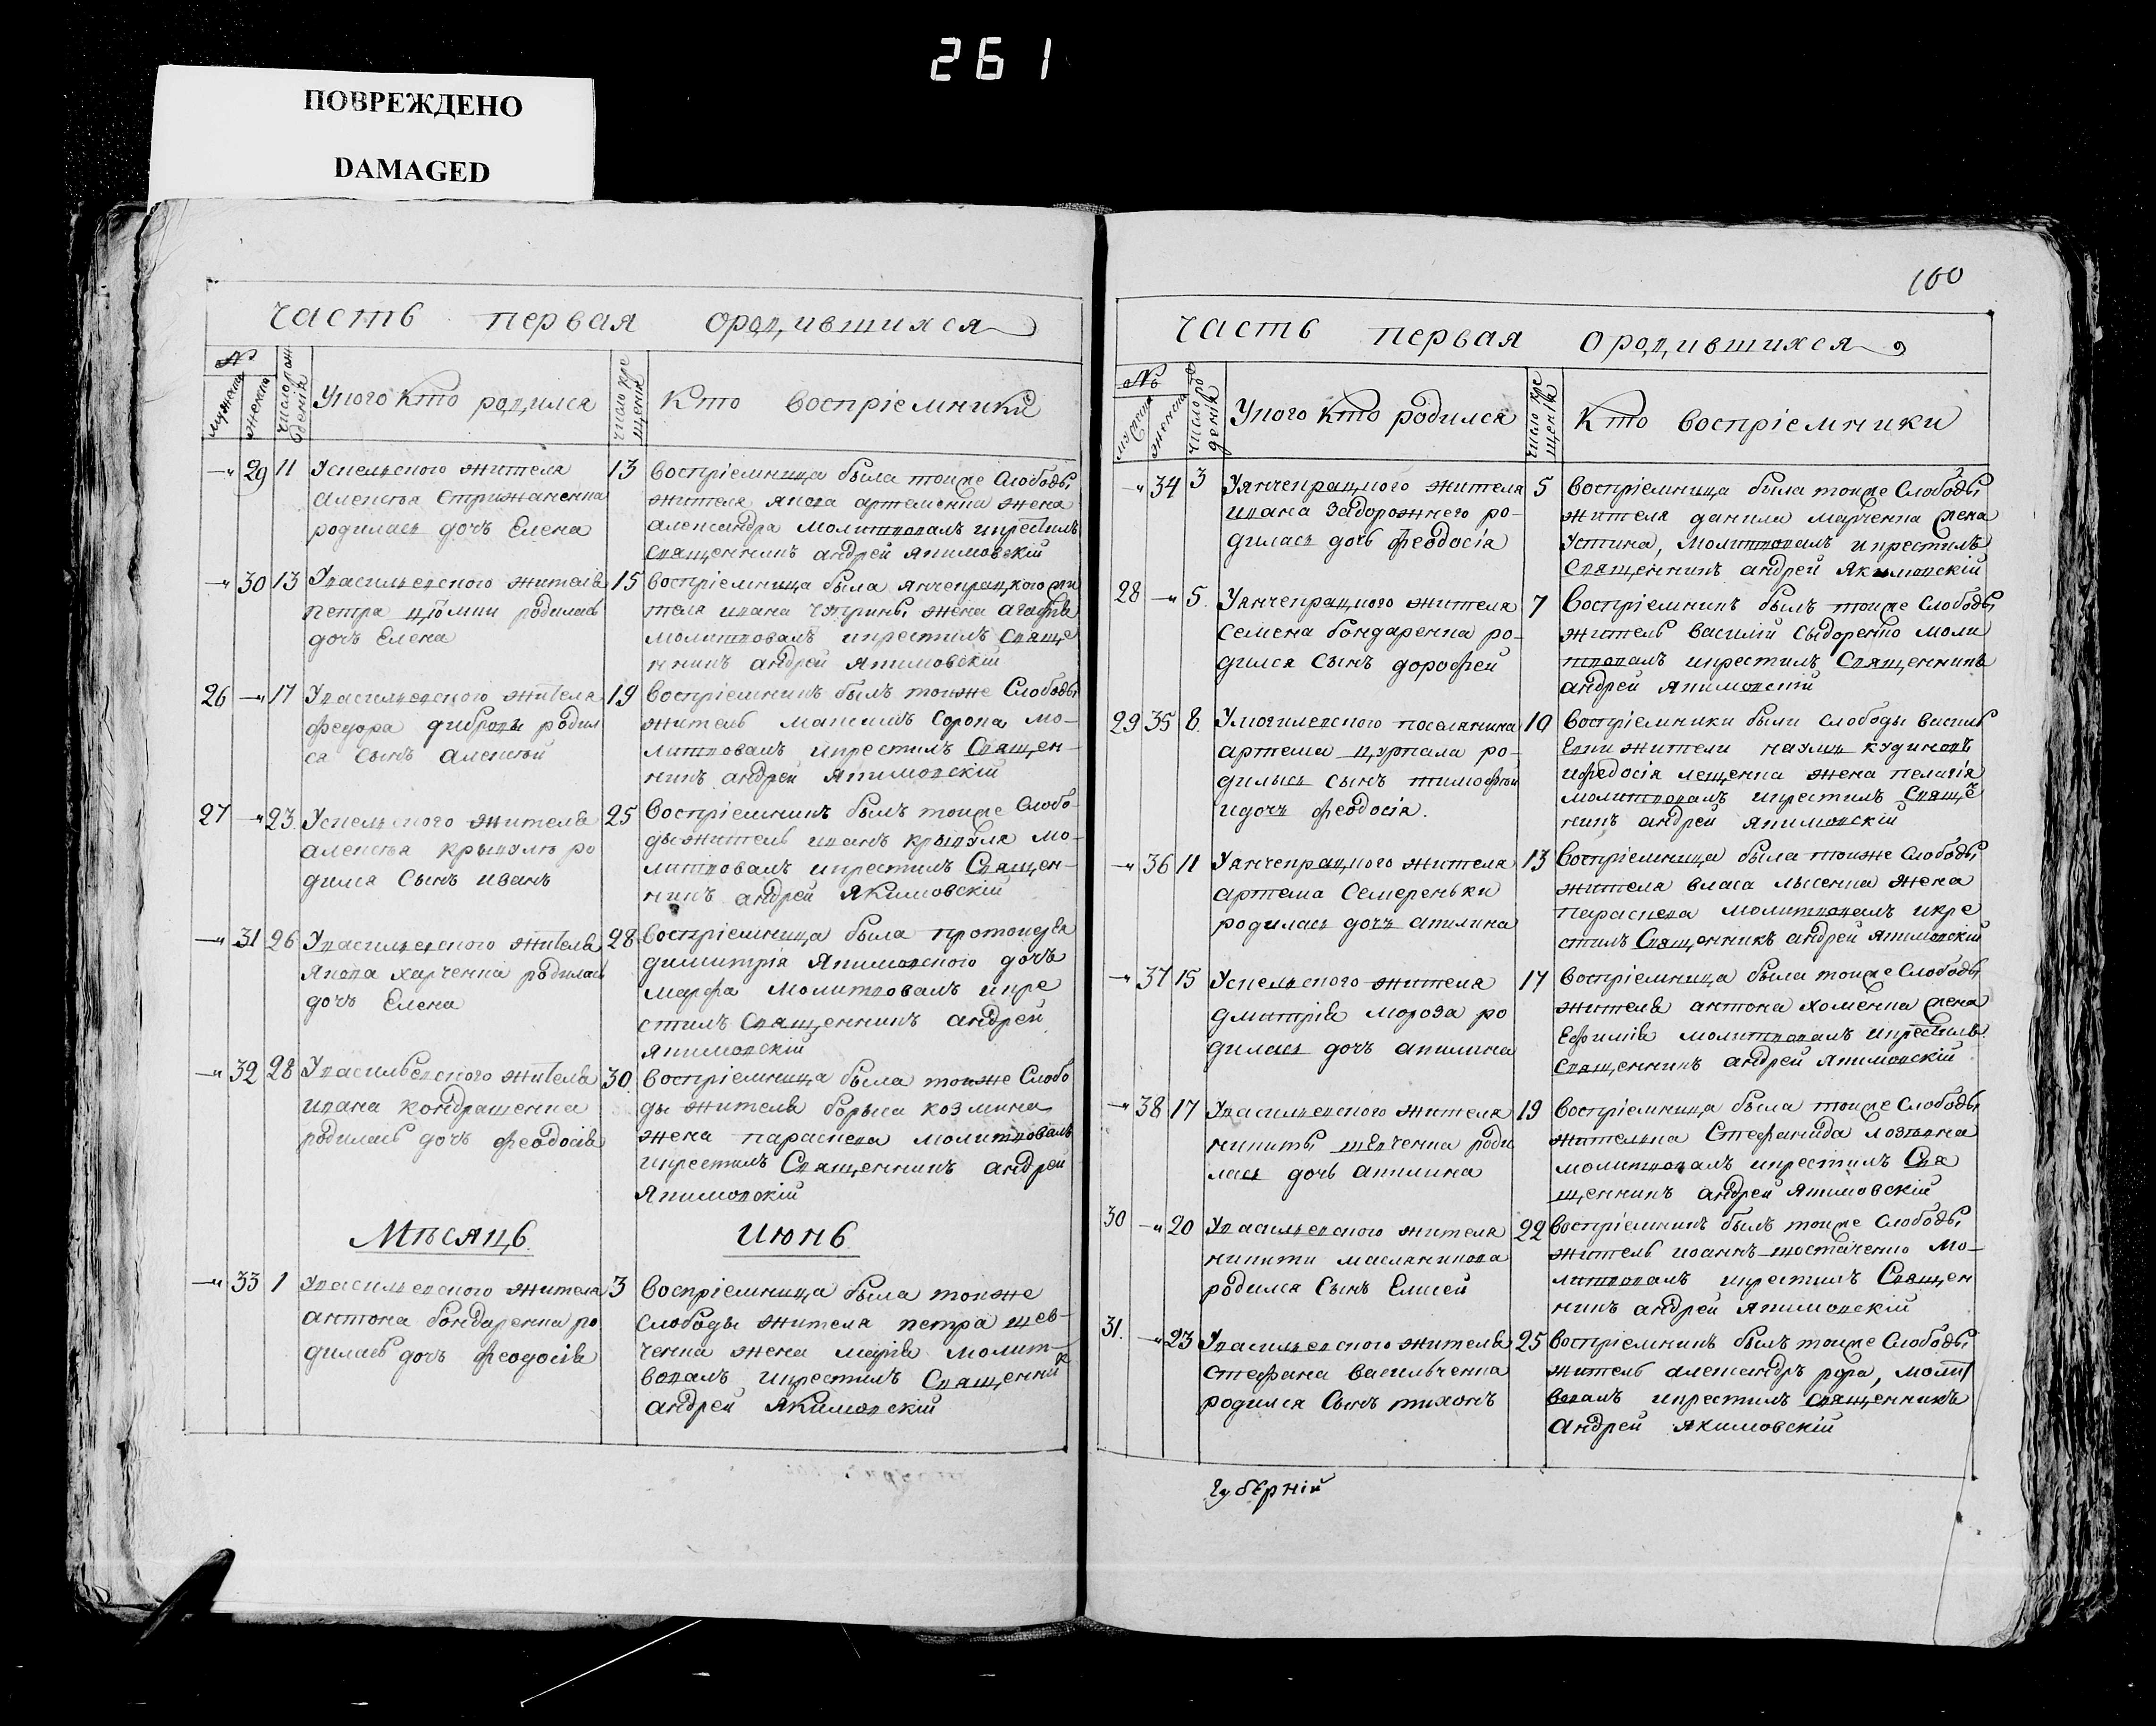 261
ПОВРЕЖДЕНО
DAMAGED
часть первая ородившихся
№
мужеска
женска
число рож
деніѧ
Укого кто родился
число кре
щеніѧ
Кто воспріемники
—„ 29 11 Успельского жителя
алексѣя Стрижаченка
родилась дочъ Елена
13 воспріемница была тоиже Слободы
жителя якова артеменка жена
александра молитвовалъ икрестилъ
Священникъ андрей якимовскій
—„ 30 13 Увасильевского жителя
петра родилась
дочъ Елена
15 воспріемница была янчекрацкого жи
теля ивана жена агафія
молитвовалъ икрестилъ Свяще
нникъ андрей якимовскій
26 —„ 17 Увасильевского жителя
федора дибровы родил
ся Сынъ алексѣй
19 воспріемникъ былъ тоиже Слободы
житель максимъ Сорока мо-
литвовалъ икрестилъ Священ-
никъ андрей якимовскій
27 —„ 23 жителя
алексѣя ро
дился Сынъ иванъ
25 воспріемникъ былъ тоиже Слобо-
ды житель иванъ мо-
литвовалъ икрестилъ Священ-
никъ андрей якимовскій
—„ 31 26 Увасильевского жителя
якова харченка родилась
дочъ Елена
28 воспріемница была протоиерея
димитрія якимовского дочъ
марфа молитвовалъ икре
стилъ Священникъ андрей
якимовскій
—„ 32 28 Увасильевского жителя
ивана кондрашенка
родилась дочъ феодосія
30 воспріемница была тоиже Слобо
ды жителя бориса козмина
жена параскева молитвовалъ
икрестилъ Священникъ андрей
якимовскій
Мѣсяцъ Июнь
—„ 33 1 Увасильевского жителя
антона бондаренка ро
дилась дочъ феодосія
3 воспріемница была тоиже
Слободы жителя петра шев-
ченка жена марія молит-
вовалъ икрестилъ Священник
андрей якимовскій
160
часть первая ородившихся
№
женска
число ро
деніѧ
Укого кто родился
число кре
щеніѧ
Кто воспріемники
—„ 34 3 Уянчекрацкого жителя
ивана Задорожнего ро-
дилась дочь феодосія
5 воспріемница была тоиже Слободы
жителя данила марченка жена
устина, молитвовалъ икрестилъ
Священникъ андрей якимовскій
28 —„ 5. Уянчекрацкого жителя
Семена бондаренка ро-
дился Сынъ дорофей
7 воспріемникъ былъ тоиже Слободы
житель василій Сыдоренко моли
твовалъ икрестилъ Священникъ
андрей якимовскій
29 35 8. Умогилевского поселянина
артема цуркала ро-
дилысь Сынъ тимофѣй
идочъ феодосія.
10 воспріемники были слободы василь
евки жители наумъ кудиновъ
ифедосія лещенка жена пелагія
молитвовалъ икрестилъ Священ
никъ андрей якимовскій
—„ 36 11 Уянчекрацкого жителя
артема Семереньки
родилась дочъ акилина
13 воспріемница была тоиже Слободы
жителя власа лысенка жена
параскева молитвовалъ икре
стилъ Священникъ андрей якимовскій
—„ 37 15 Успельсного жителя
дмитрія мороза ро
дилась дочъ акилина
17 воспріемница была тоиже Слободы
жителя антона хоменка жена
Ефимія молитвовалъ икрестилъ
Священникъ андрей якимовскій
—„ 38 17 Увасильевского жителя
никиты шевченка роди
лась дочь акилина
19 воспріемница была тоиже Слободы
жителька Стефанида
молитвовалъ икрестилъ Свя
щенникъ андрей якимовскій
30 —„ 20 Увасильевского жителя
никити масляникова
родился Сынъ Елисей
22 воспріемникъ былъ тоиже Слободы
житель иоаннъ шостаченко мо-
литвовалъ икрестилъ Священ
никъ андрей якимовскій
31. —„ 23 Увасильевского жителя
стефана васильченка
родился Сынъ тихонъ
25 воспріемникъ былъ тоиже Слободы
житель александръ молит
вовалъ икрестилъ Священникъ
андрей якимовскій
губерній